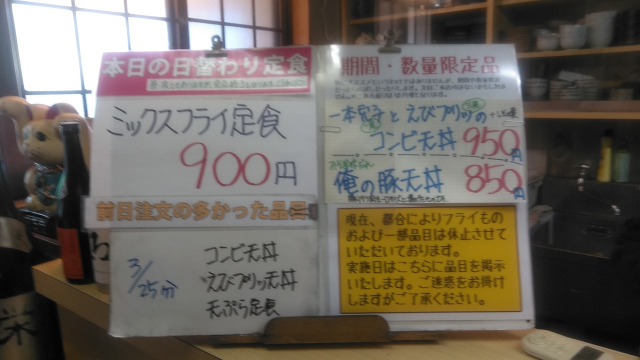 本日の日替わり定食
ミックスフライ定食
900円
前日注文の多かった品
3/25分
コンビ天丼
えびプリッ天丼
天ぷら定食
期間・数量限定品
一本穴子とえびプリッの
コンビ天丼 950円
俺の豚天丼 850円
現在、都合によりフライもの
および一部品目は休止させて
いただいております。
実施日はこちらに品目を掲示
いたします。ご迷惑をお掛け
しますがご了承ください。
栄